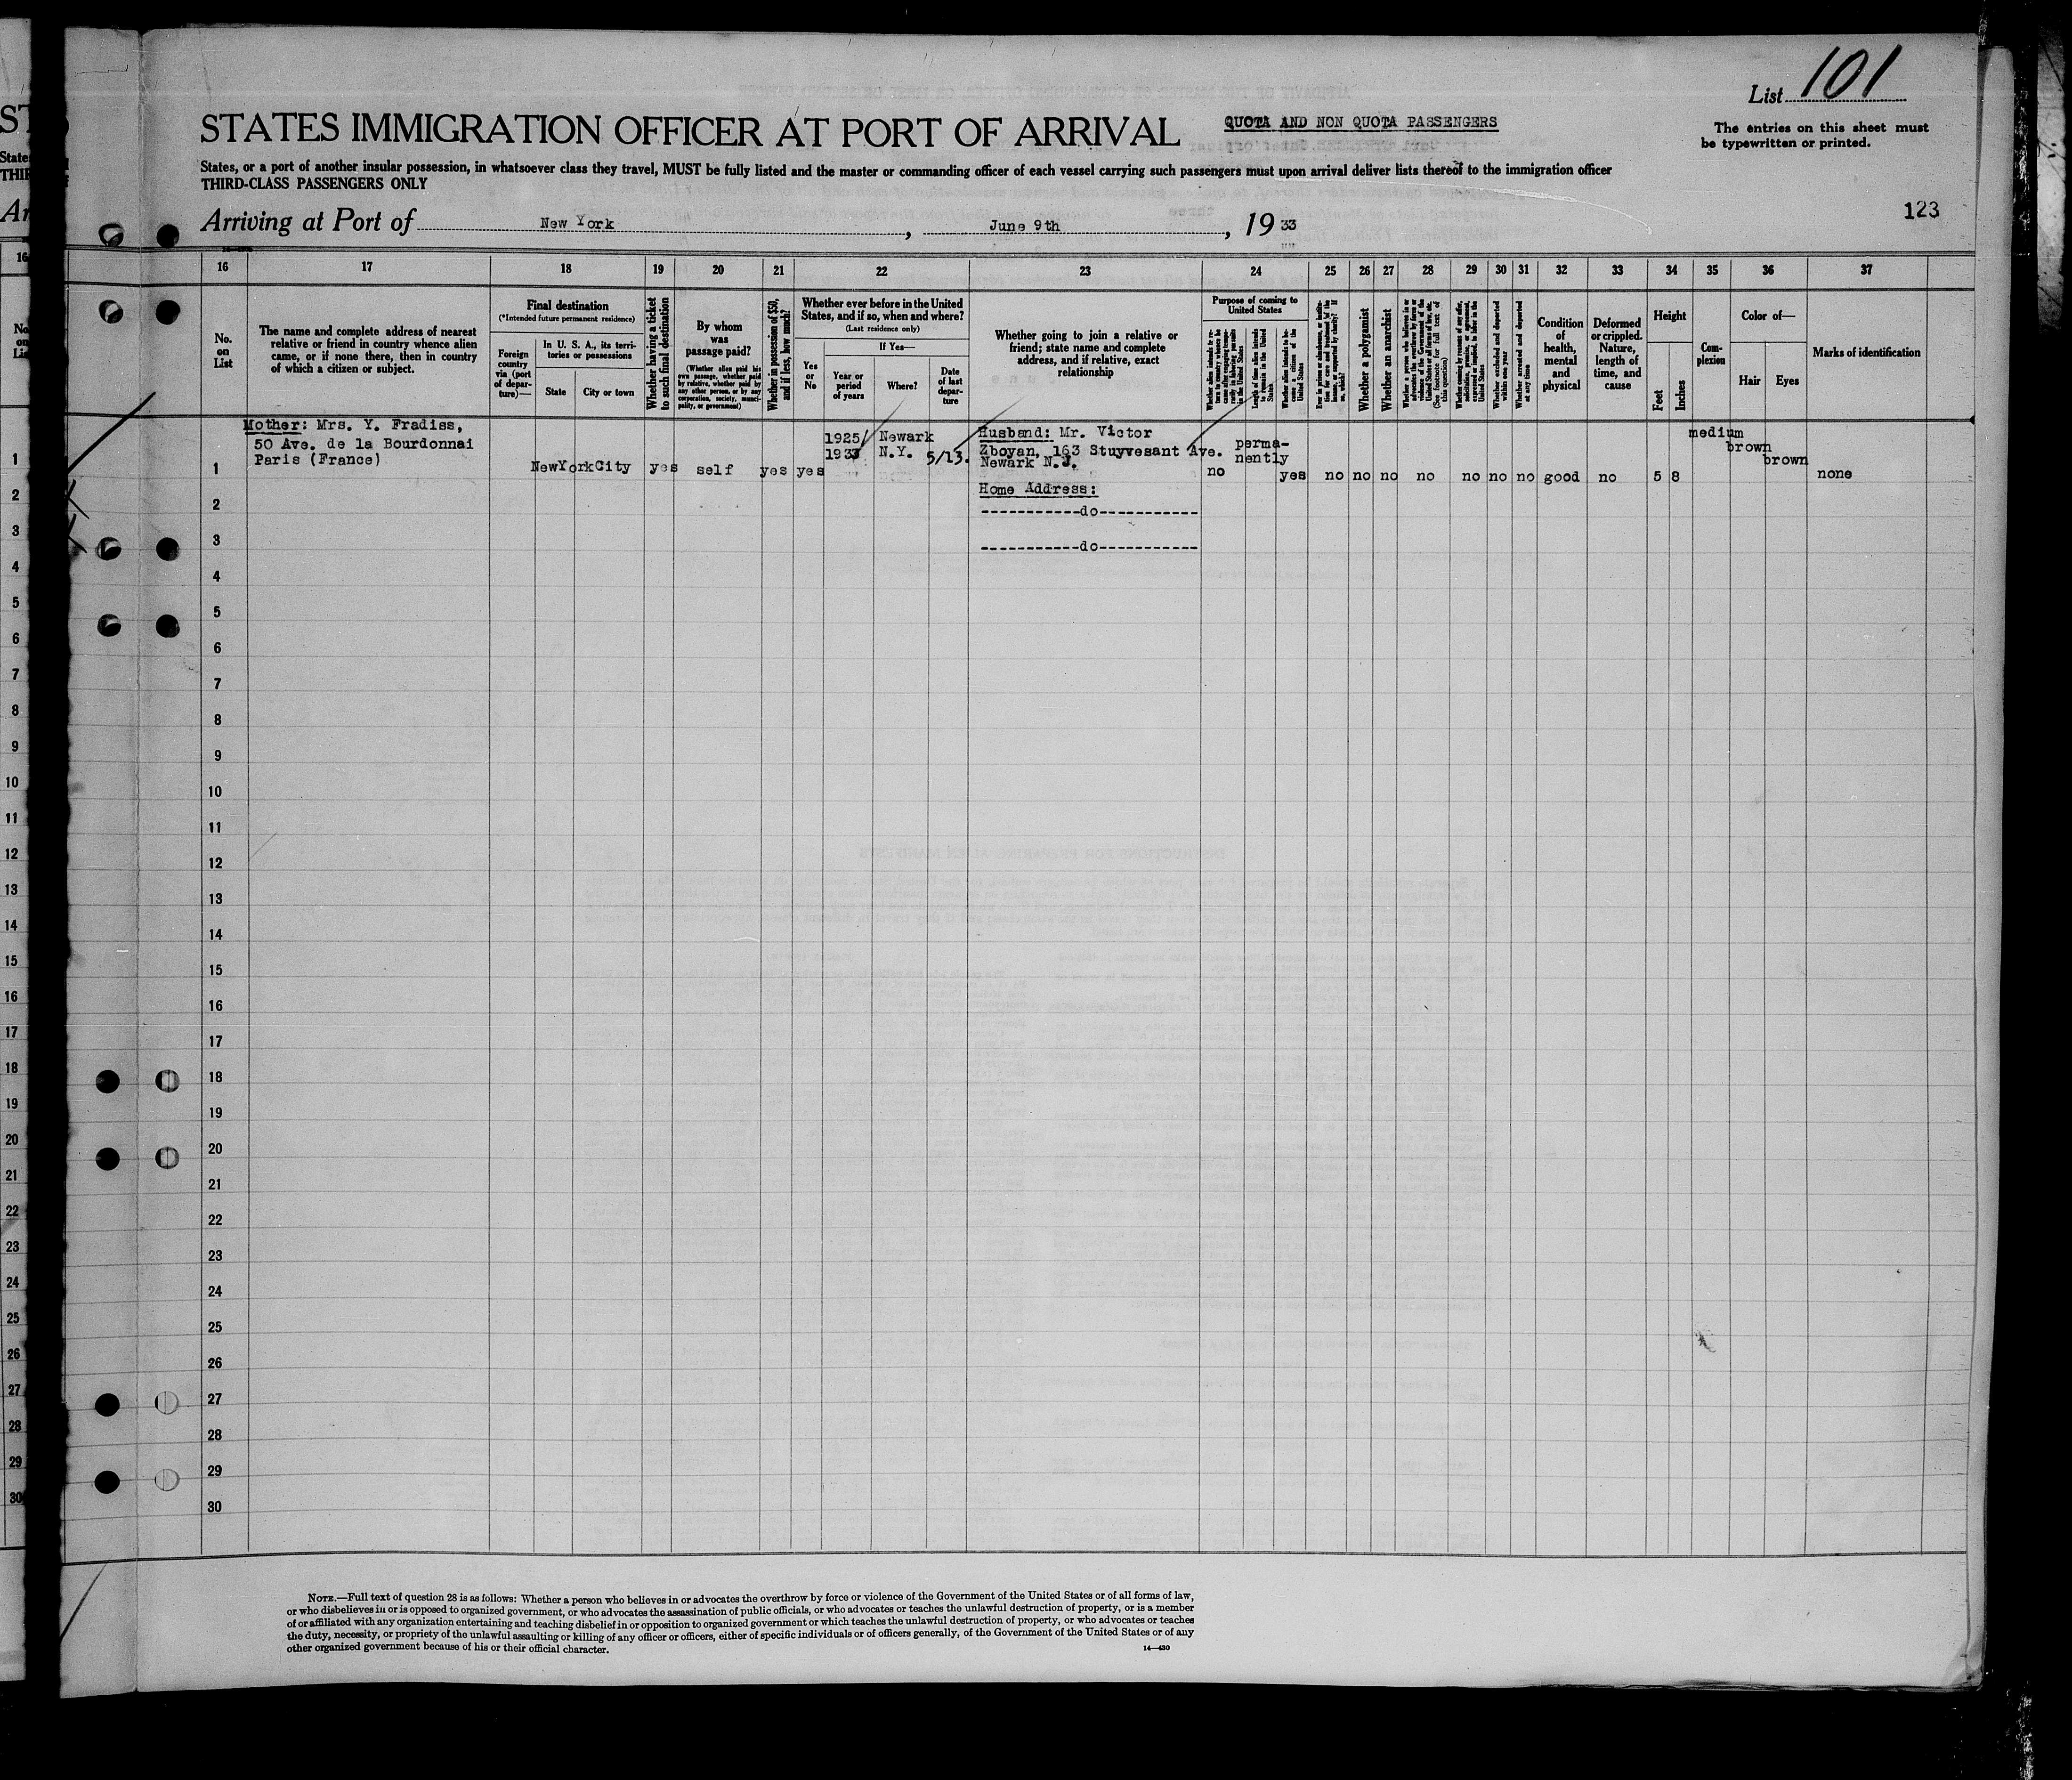 List 101
STATES IMMIGRATION OFFICER AT PORT OF ARRIVAL
QUOTA AND NON QUOTA PASSENGERS
The entries on this sheet must
be typewritten or printed.
States, or a port of another insular possession, in whatsoever class they travel, MUST be fully listed and the master or commanding officer of each vessel carrying such passengers must upon arrival deliver lists thereof to the immigration officer
THIRD-CLASS PASSENGERS ONLY
123
Arriving at Port of New York, June 9th, 1933
16 17 18 19 20 21 22 23 24 25 26 27 28 29 30 31 32 33 34 35 36 37
No.
on
List
The name and complete address of nearest
relative or friend in country whence alien
came, or if none there, then in country
of which a citizen or subject.
Final destination
(*Intended future permanent residence)
Foreign
country
via (port
of depar-
ture)—
In U. S. A., its terri-
tories or possessions
State
City or town
Whether having a ticket
to such final destination
By whom
was
passage paid?
(Whether alien paid his
own passage, whether paid
by relative, whether paid by
any other person, or by any
corporation, society, munici-
pality, or government)
Whether in possession of $50,
and if less, how much?
Whether ever before in the United
States, and if so, when and where?
(Last residence only)
Yes
or
No
If Yes—
Year or
period
of years
Where?
Date
of last
depar-
ture
Whether going to join a relative or
friend; state name and complete
address, and if relative, exact
relationship
Purpose of coming to
United States
Whether alien intends to re-
turn to country whence he
came after engaging tempo-
rarily in laboring pursuits
in the United States
Length of time alien intends
to remain in the United
States
Whether alien intends to be-
come a citizen of the
United States
Whether a polygamist
Whether an anarchist
(See footnote for full text of
this question)
Whether excluded and deported
within one year
Whether arrested and deported
at any time
Condition
of
health,
mental
and
physical
Deformed
or crippled.
Nature,
length of
time, and
cause
Height
Feet
Inches
Com-
plexion
Color of—
Hair
Eyes
Marks of identification
Mother: Mrs. Y. Fradiss,
50 Ave. de la Bourdonnai
Paris (France)
1 NewYorkCity yes self yes yes
1925/ Newark
N.Y. 5/13.
Husband: Mr. Victor
Zboyan, 163 Stuyvesant Ave.
Newark N.J.
Home Address:
perma-
nently
no yes no no no no no no no good no 5 8
medium
brown
brown
none
2 -----------do-----------
3 -----------do-----------
4
5
6
7
8
9
10
11
12
13
14
15
16
17
18
19
20
21
22
23
24
25
26
27
28
29
30
NOTE.—Full text of question 28 is as follows: Whether a person who believes in or advocates the overthrow by force or violence of the Government of the United States or of all forms of law,
or who disbelieves in or is opposed to organized government, or who advocates the assassination of public officials, or who advocates or teaches the unlawful destruction of property, or is a member
of or affiliated with any organization entertaining and teaching disbelief in or opposition to organized government or which teaches the unlawful destruction of property, or who advocates or teaches
the duty, necessity, or propriety of the unlawful assaulting or killing of any officer or officers, either of specific individuals or of officers generally, of the Government of the United States or of any
other organized government because of his or their official character.
14—430